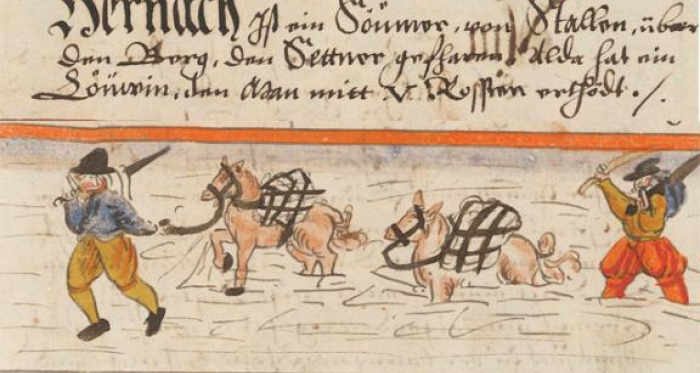 Hernach Ist ein Söumer, von Stallen, über
den Berg, den Settner gefharen. Alda hat ein
Löuwin, den Man mitt V. Rossen erthödt ./.